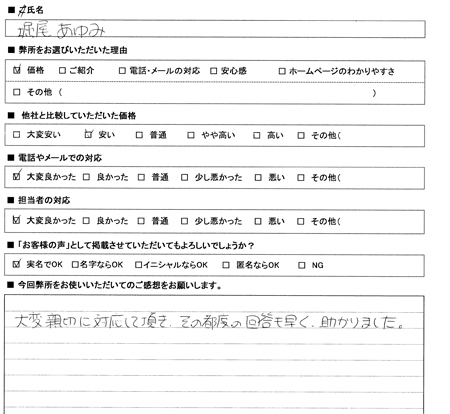 ■ お氏名
堀尾 あゆみ
■ 弊所をお選びいただいた理由
☑ 価格 □ ご紹介 □ 電話・メールの対応 □ 安心感 □ ホームページのわかりやすさ
□ その他 ( )
■ 他社と比較していただいた価格
□ 大変安い ☑ 安い □ 普通 □ やや高い □ 高い □ その他(
■ 電話やメールでの対応
☑ 大変良かった □ 良かった □ 普通 □ 少し悪かった □ 悪い □ その他(
■ 担当者の対応
☑ 大変良かった □ 良かった □ 普通 □ 少し悪かった □ 悪い □ その他(
■ 「お客様の声」として掲載させていただいてもよろしいでしょうか?
☑ 実名でOK □ 名字ならOK □ イニシャルならOK □ 匿名ならOK □ NG
■ 今回弊所をお使いいただいてのご感想をお願いします。
大変親切に対応して頂き、その都度の回答も早く、助かりました。